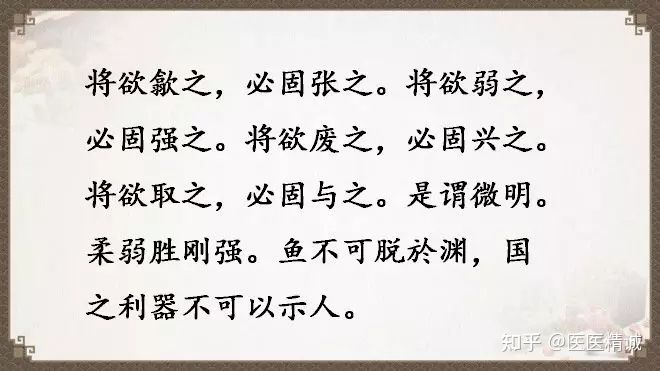 将欲歙之，必固张之。将欲弱之，
必固强之。将欲废之，必固兴之。
将欲取之，必固与之。是谓微明。
柔弱胜刚强。鱼不可脱於渊，国
之利器不可以示人。
知乎 @医医精诚